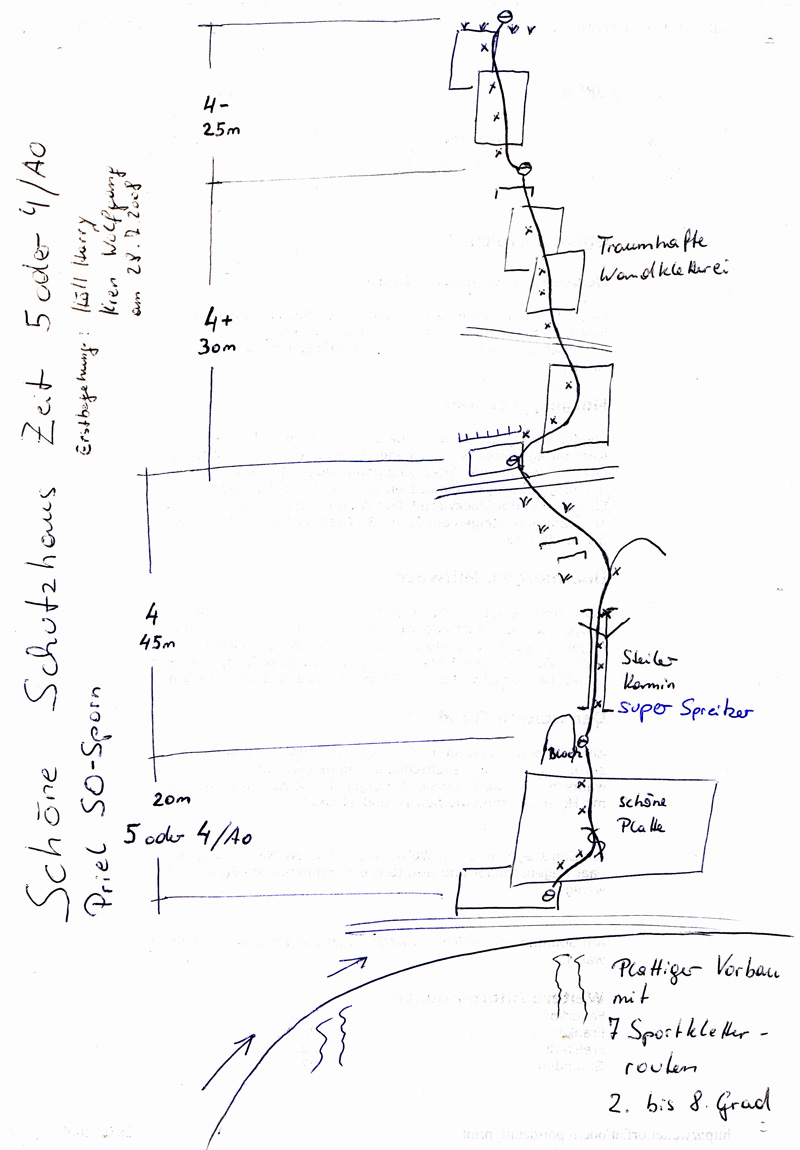 Schöne Schutzhaus Zeit 5 oder 4/A0
Priel SO-Sporn
Erstbegehung: Höll Harry
Kren Wolfgang
am 28.7.2008
4-
25m
4+
30m
Traumhafte
Wandkletterei
4
45m
Steiler
Kamin
super Spreitzer
Block
20m
5 oder 4/A0
schöne
Platte
Plattiger Vorbau
mit
7 Sportkletter-
routen
2. bis 8. Grad